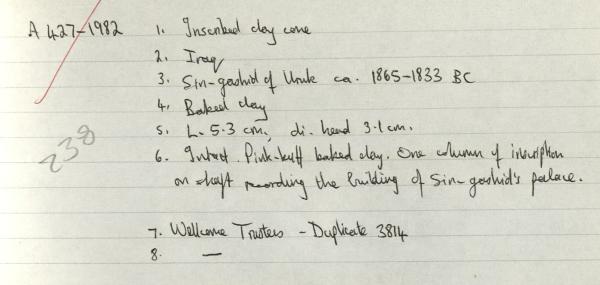 A 427-1982 1. Inscribed clay cone
2. Iraq
3. Sin-gashid of Uruk ca. 1865-1833 BC
4. Baked clay
5. L. 5.3 cm, di. head 3.1 cm.
238
6. Intact. Pink-buff baked clay. One column of inscription
on shaft recording the building of Sin-gashid's palace.
7. Wellcome Trustees - Duplicate 3814
8. —